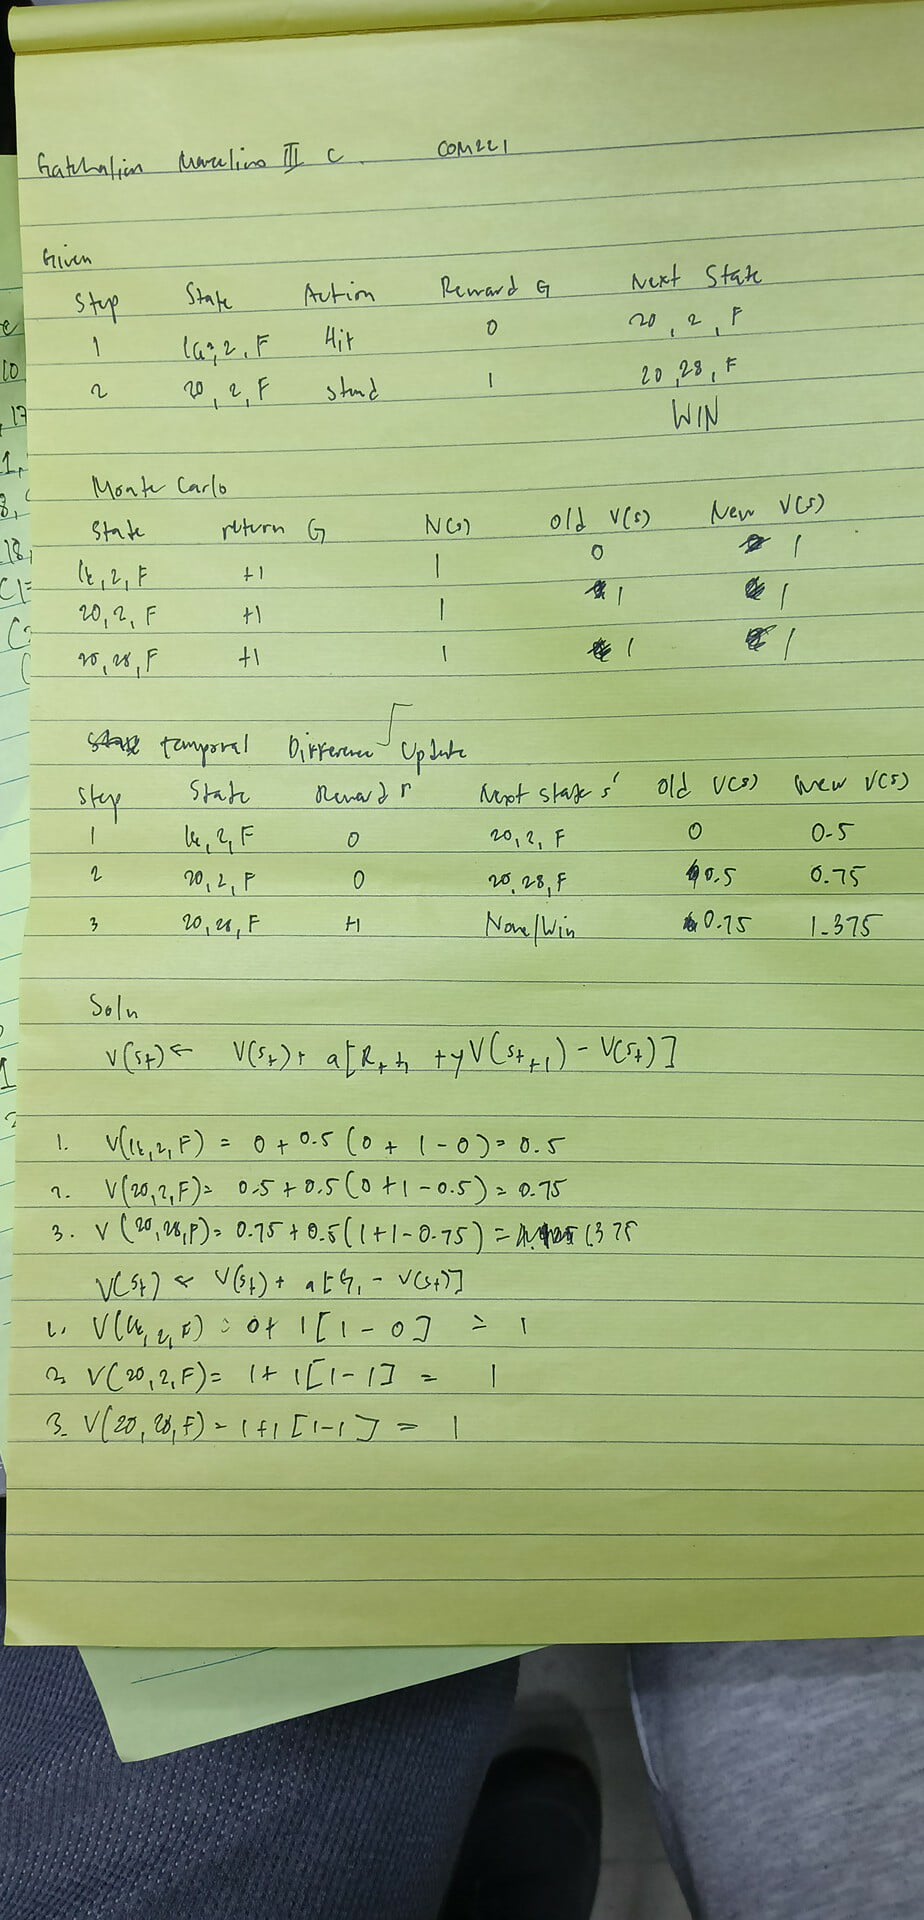 Gatchalian Marcelino III C. COM221
Given
Step State Action Reward G Next State
1 2, F Hit 0 20, 2, F
2 20, 2, F stand 1 20, 28, F
WIN
Monte Carlo
State return G N(s) Old V(s) New V(s)
2, F +1 1 0 1
20, 2, F +1 1 1 1
20, 28, F +1 1 1 1
temporal Difference Update
Step State Reward r Next state s' Old V(s) New V(s)
1 2, F 0 20, 2, F 0 0.5
2 20, 2, F 0 20, 28, F 0.5 0.75
3 20, 28, F +1 None/Win 0.75 1.375
Soln
V(St) ← V(St) + a[Rt+1 + yV(St+1) - V(St)]
1. V(, 2, F) = 0 + 0.5 (0 + 1 - 0) = 0.5
2. V(20, 2, F) = 0.5 + 0.5 (0 + 1 - 0.5) = 0.75
3. V(20, 28, F) = 0.75 + 0.5 (1 + 1 - 0.75) = 1375
V(St) ← V(St) + a[G, - V(St)]
1. V(, 2, F) = 0 + 1 [1 - 0] = 1
2. V(20, 2, F) = 1 + 1 [1 - 1] = 1
3. V(20, 28, F) = 1 + 1 [1 - 1] = 1